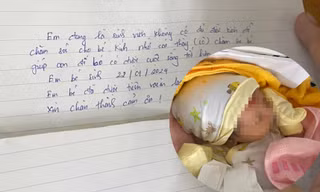 Em đang là sinh viên không có đủ điều kiện để
chăm sóc cho bé. Kính nhờ
giúp con để bé có được cuộc sống tốt hơn
Em bé sinh 22/01/2024
Em bé đã được tiêm
Xin chân thành cảm ơn!